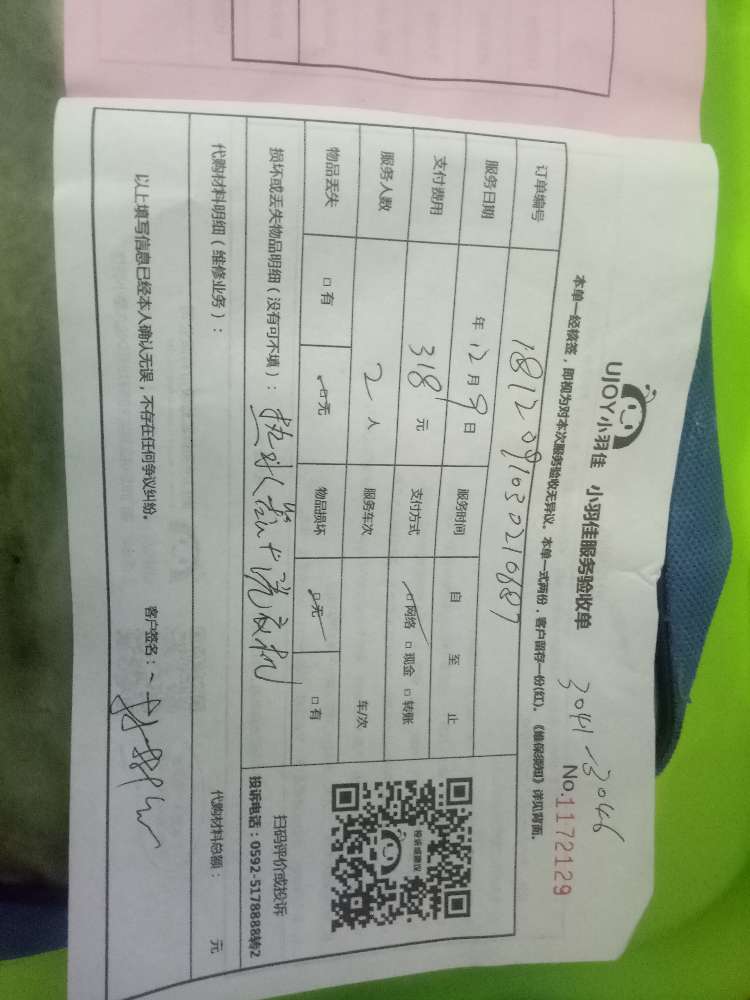 UJOY小羽佳 小羽佳服务验收单
3041-3046
No.1172129
本单一经核签，即视为对本次服务验收无异议。本单一式两份，客户留存一份(红)。《维保须知》详见背面。
订单编号 1812091030210687
服务日期 年12月9日 服务时间 自 至 止
支付费用 318元 支付方式 网络 现金 转账
服务人数 2人 服务车次 车/次
物品丢失 有 无 物品损坏 无 有
损坏或丢失物品明细（没有可不填）：热水器+洗衣机
扫码评价或投诉
投诉电话：0592-5178888转2
代购材料明细（维修业务）：
代购材料总额： 元
以上填写信息已经本人确认无误，不存在任何争议纠纷。 客户签名：